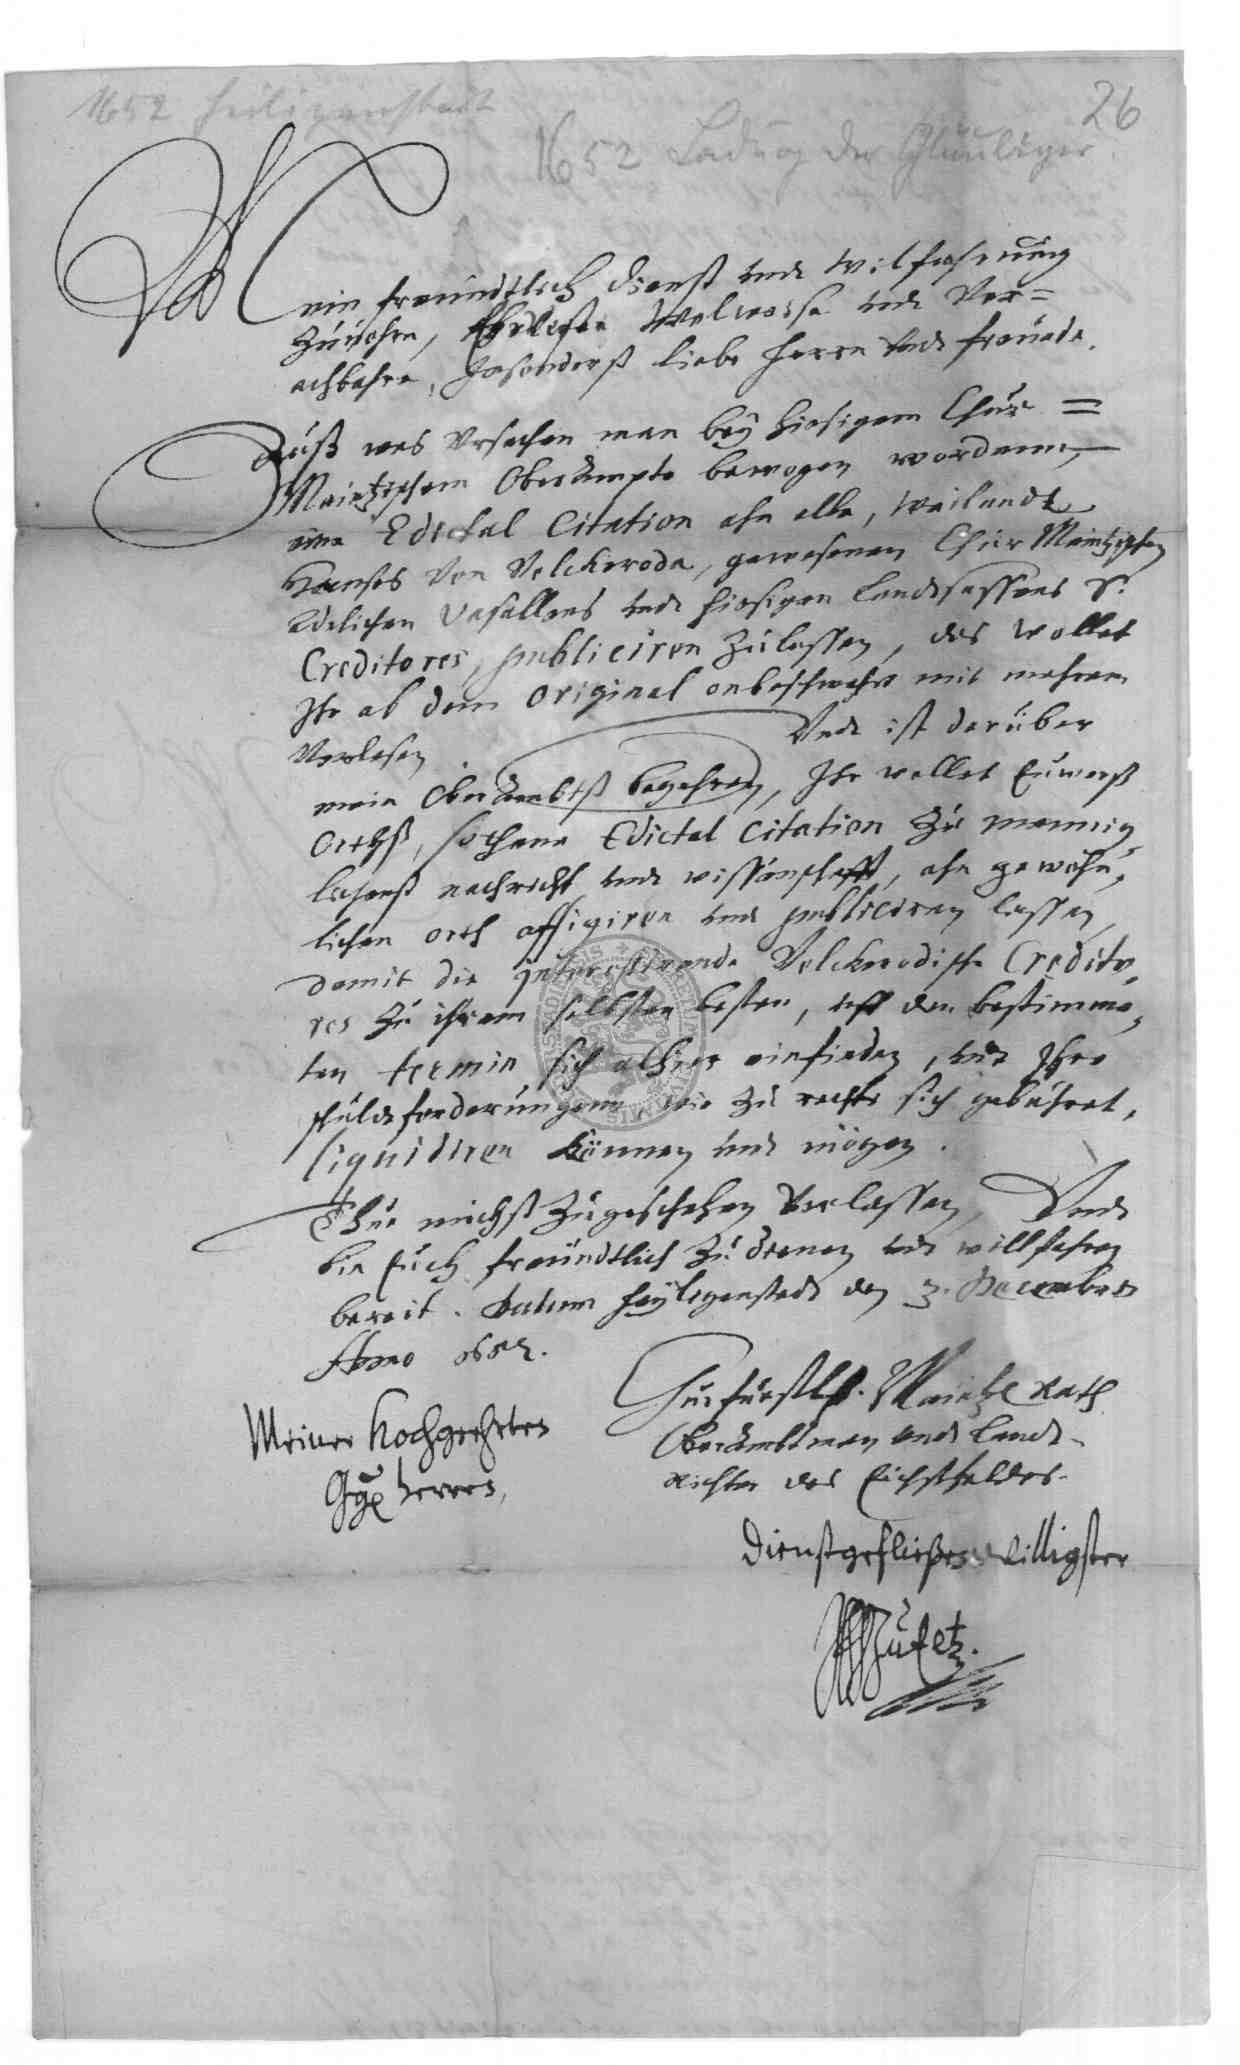 26
1652 Heiligenstadt
1652 Ladung der Gläubiger
Mein freundtlich dienst undt wilfahrung
zuuohrn, Ehrveste Wolweise undt Vor=
achtbahre, Insonderß liebe Herrn undt freunde.
Auß was Vrsachen man bey hiesigem Chur=
Maintzischem Oberampte bewogen wordenn,
eine Edictal Citation ahn alle, weilandt
Hanses Von Volckeroda, gewesenen Chur Maintzischen
Adelichen Vasallens undt hiesigen Landtsassens S.
Creditores, publiciren zulassen, das wollet
Ihr ab dem Original onbeschwehrt mit mehrem
Verlesen Undt ist darüber
mein Oberambtß begehren, Ihr wollet Euwerß
Orthß, sothane Edictal Citation zu mennig,
lichenß nachricht undt wissenschafft, ahn gewöhn,
lichen orth affigiren undt publiciren lassen,
damit die interessirende Volckerodische Credito,
res zu ihrem selbsten besten, uff den bestimm,
ten termin sich alhier einfinden, undt Ihre
schuldtforderungen wie zu recht sich gebühret,
liquidiren können undt mögen.
Thue michß zugeschehen Verlassen, Undt
bin Euch freundtlich zu dienen undt willfahren
bereit. Datum Heyligenstadt den 3. Decembris
Anno 1652.
Churfürstlr. Maintz. Rath
Oberambtman undt Landt-
richter des Eichsfeldes.
Meiner Hochgeehrten
Hgg. Herren,
dienstgefließen willigster